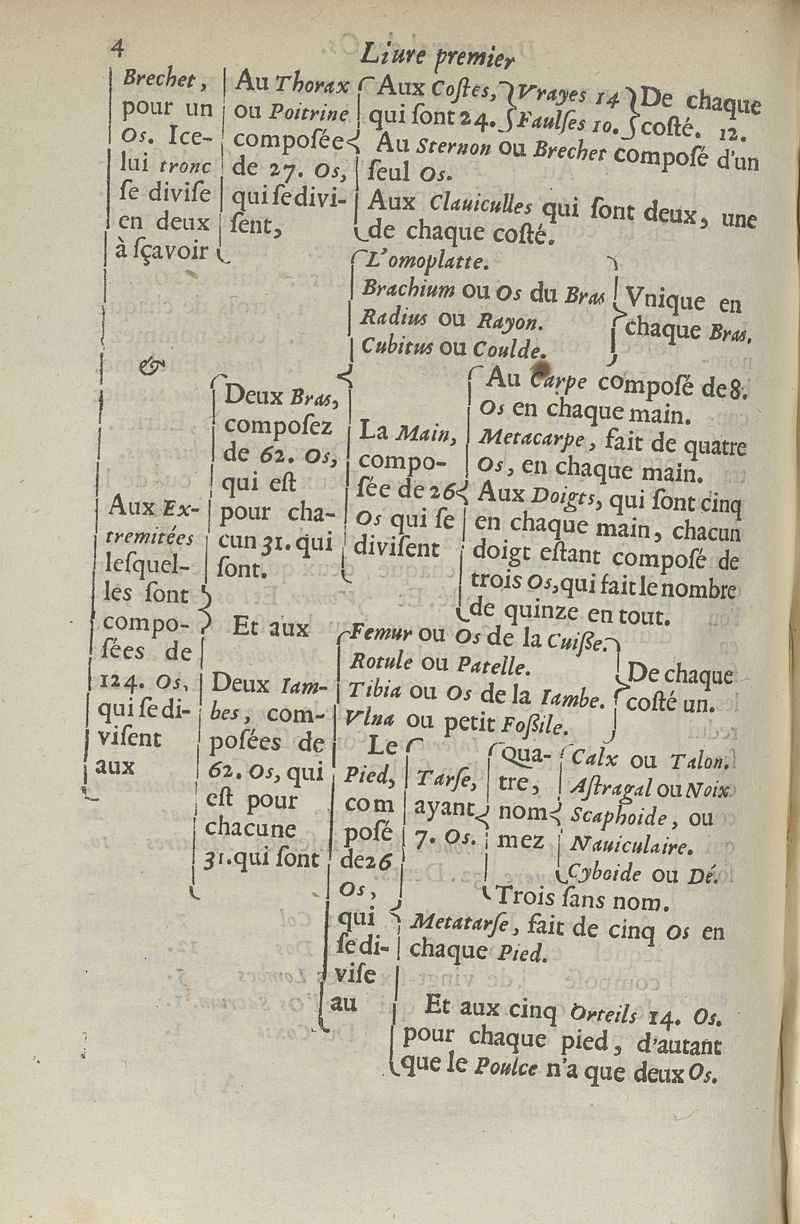 4
Liure premier
Brechet,
pour un
Os. Ice-
lui tronc
ſe diviſe
en deux
à ſçavoir
Au Thorax
ou Poitrine
compoſée
de 27. Os,
qui ſe divi-
ſent,
Aux Coſtes,
qui ſont 24.
Vrayes 14
Faulſes 10.
De chaque
coſté. 12.
Au Sternon ou Brechet compoſé d'un
ſeul Os.
Aux Clauiculles qui ſont deux, une
de chaque coſté.
&
Aux Ex-
tremitées
leſquel-
les ſont
compo-
ſées de
124. Os,
qui ſe di-
viſent
aux
Deux Bras,
compoſez
de 62. Os,
qui eſt
pour cha-
cun 31. qui
ſont.
L'omoplatte.
Brachium ou Os du Bras
Radius ou Rayon.
Cubitus ou Coulde.
Vnique en
chaque Bras.
La Main,
compo-
ſée de 26
Os qui ſe
diviſent
Au Carpe compoſé de 8.
Os en chaque main.
Metacarpe, fait de quatre
Os, en chaque main.
Aux Doigts, qui ſont cinq
en chaque main, chacun
doigt eſtant compoſé de
trois Os, qui fait le nombre
de quinze en tout.
Et aux
Deux Iam-
bes, com-
poſées de
62. Os, qui
eſt pour
chacune
31. qui ſont
Femur ou Os de la Cuiſſe.
Rotule ou Patelle.
Tibia ou Os de la Iambe.
Vlna ou petit Foſſile.
De chaque
coſté un.
Le
Pied,
com
poſé
de 26
Os,
qui
ſe di-
viſe
au
Tarſe,
ayant
7. Os.
Qua-
tre,
nom
mez
Calx ou Talon.
Aſtragal ou Noix
Scaphoide, ou
Nauiculaire.
Cyboide ou Dé.
Trois ſans nom.
Metatarſe, fait de cinq Os en
chaque Pied.
Et aux cinq Orteils 14. Os.
pour chaque pied, d'autant
que le Poulce n'a que deux Os.